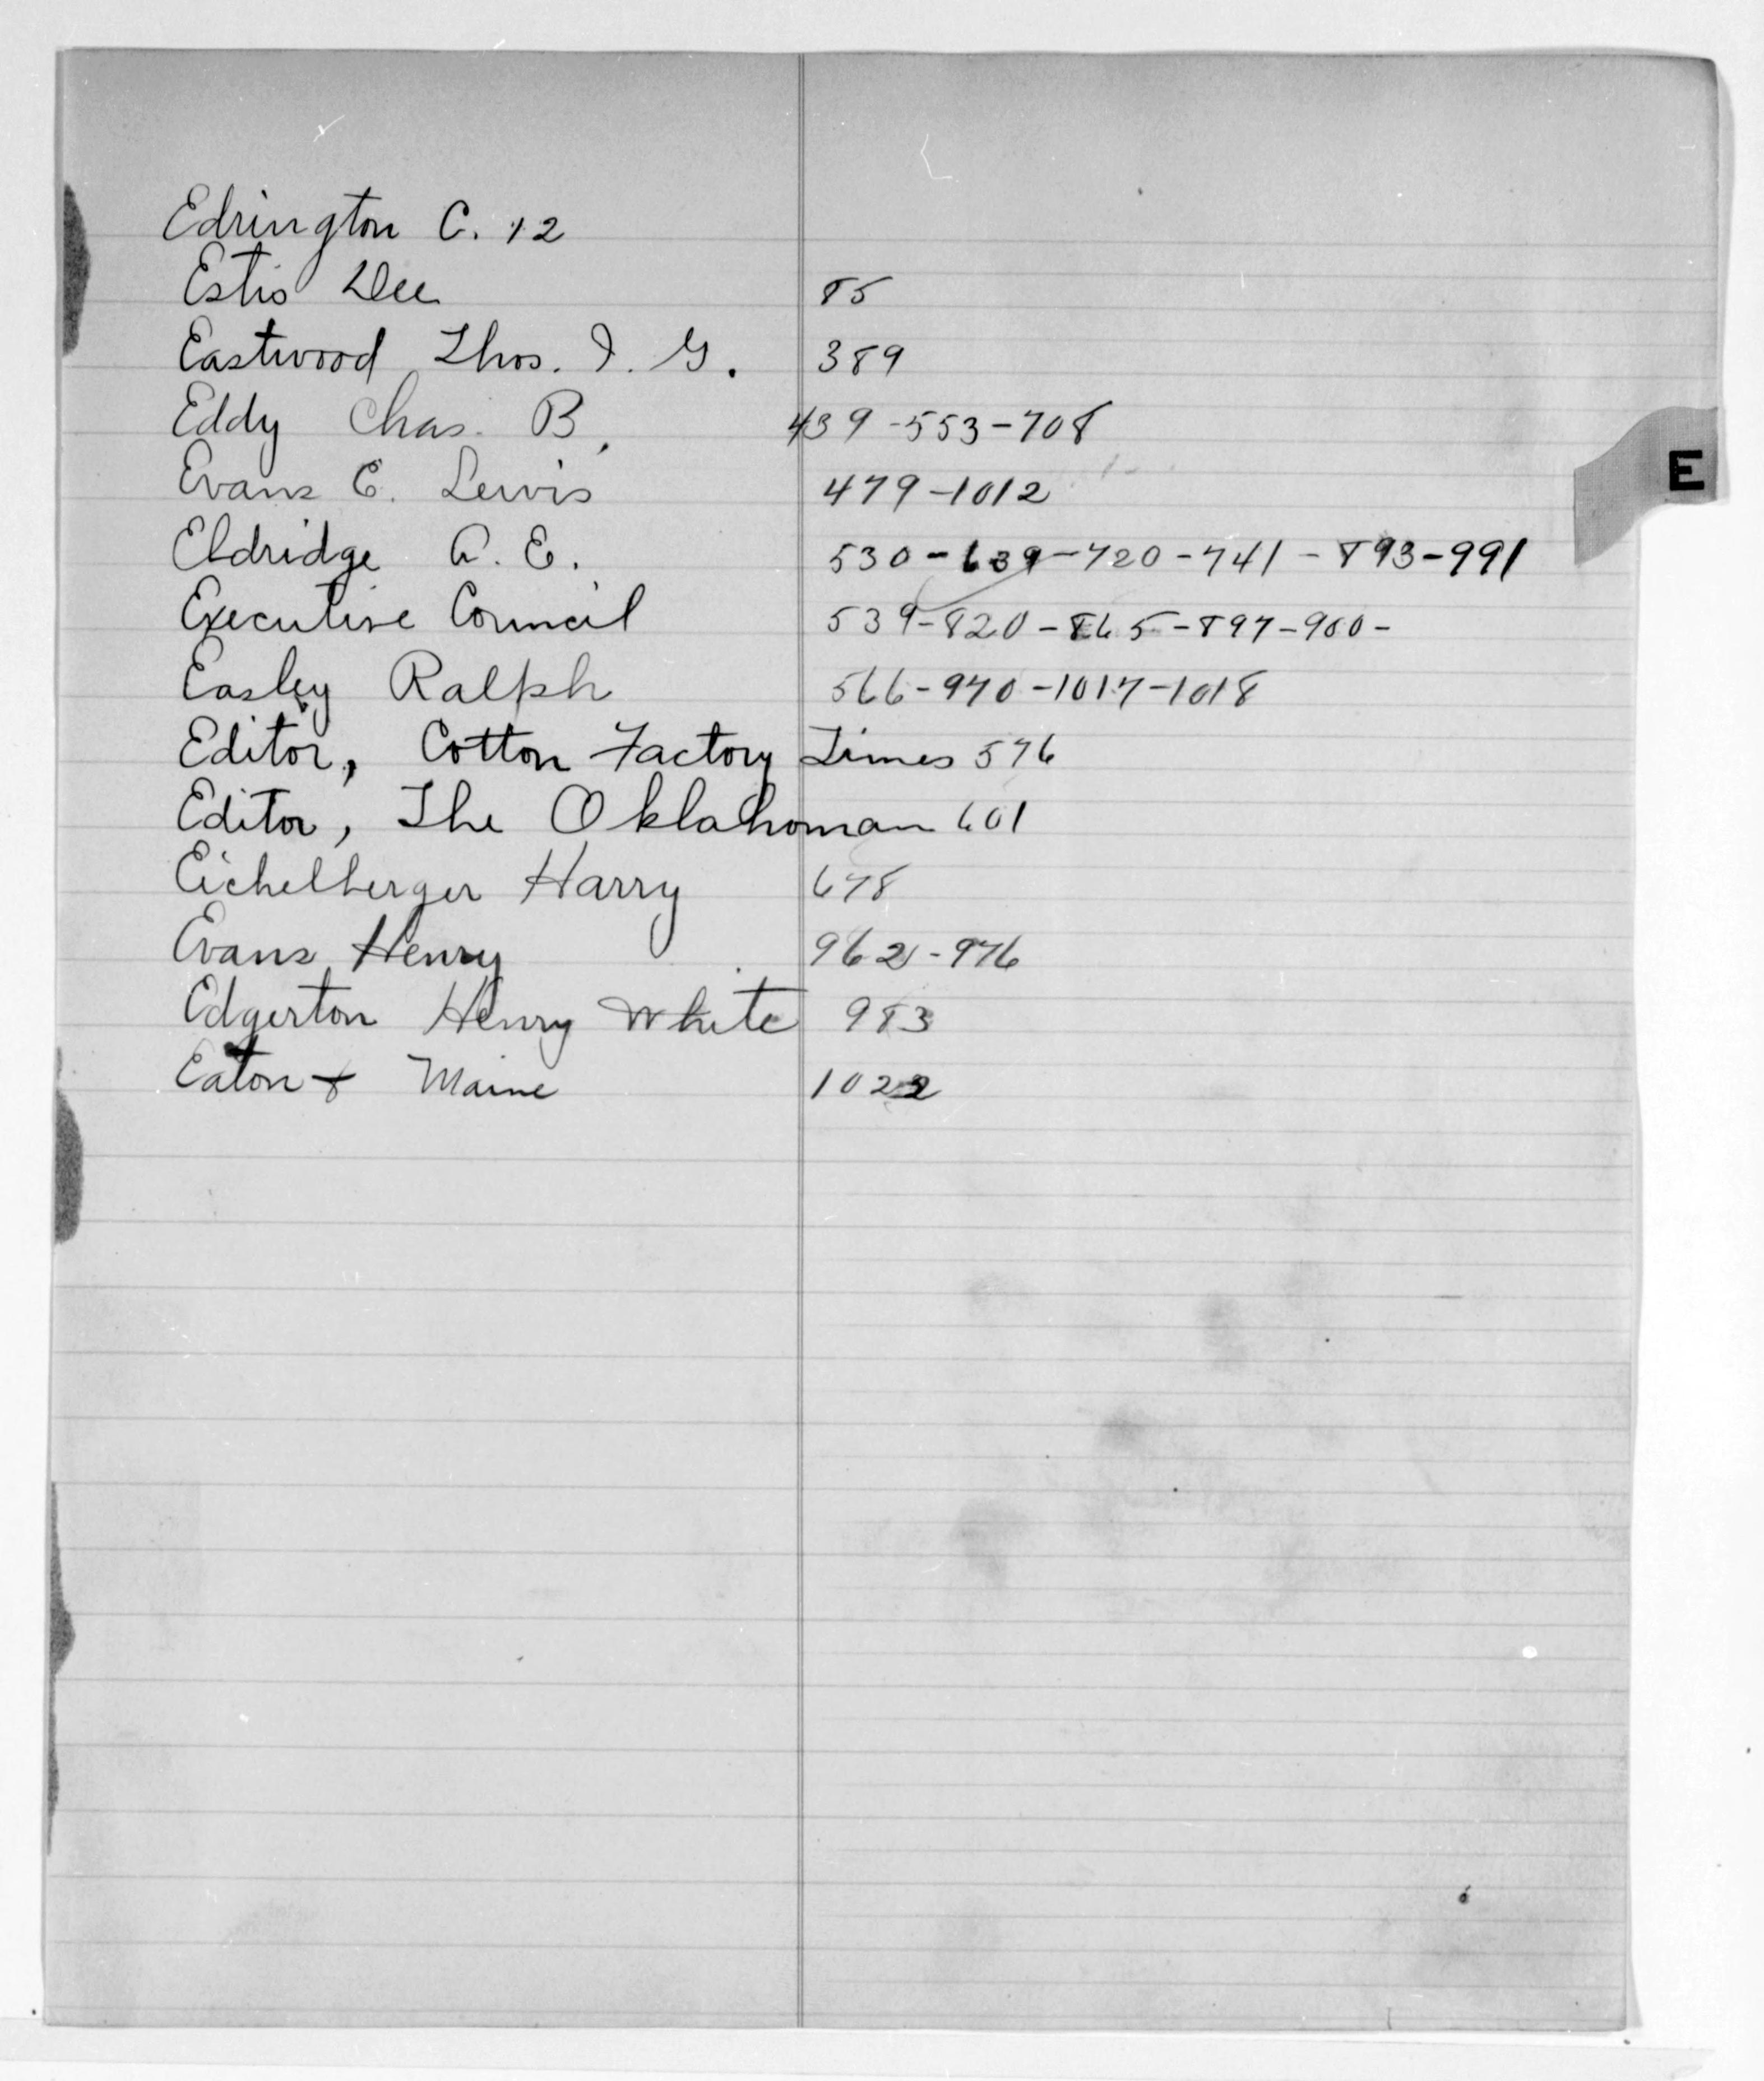 Edrington C. 12
Estis Dee 85
Eastwood Thos. I. G. 389
Eddy Chas. B. 439-553-708
Evans E. Lewis 479-1012
E
Eldridge A. E. 530-639-720-741-893-991
Executive Council 539-820-865-897-900-
Easley Ralph 566-970-1017-1018
Editor, Cotton Factory Times 576
Editor, The Oklahoman 601
Eichelberger Harry 678
Evans Henry 962-976
Edgerton Henry White 983
Eaton & Maine 1022